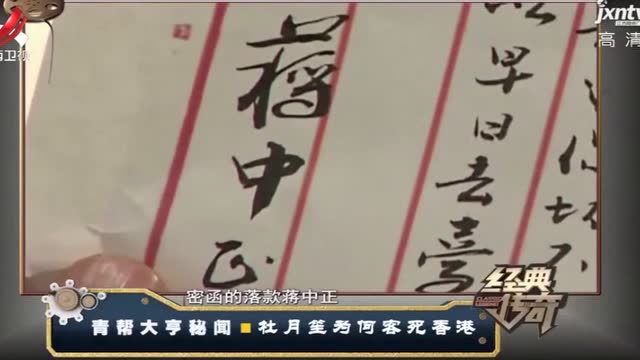 卫视
jxntv
高清
早日去
蔣中正
密函的落款蒋中正
青帮大亨秘闻■杜月笙为何客死香港
经典
传奇